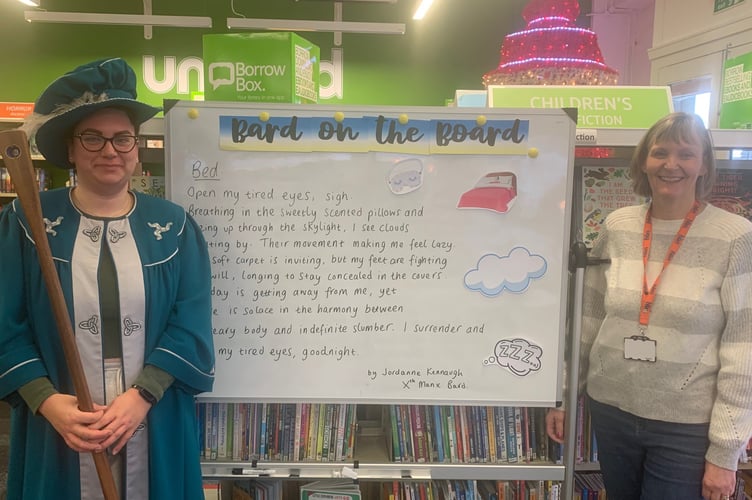 Borrow
Box.
Your library in one app
HORROR
CHILDREN'S
Bard on the Board
Bed
Open my tired eyes, sigh.
Breathing in the sweetly scented pillows and
up through the skylight, I see clouds
by. Their movement making me feel lazy.
soft carpet is inviting, but my feet are fighting
will, longing to stay concealed in the covers
day is getting away from me, yet
is solace in the harmony between
body and indefinite slumber. I surrender and
my tired eyes, goodnight.
by Jordanne Kennaugh
Xth Manx Bard.
ZZZ
I AM
THE SEED
THAT GREW
THE